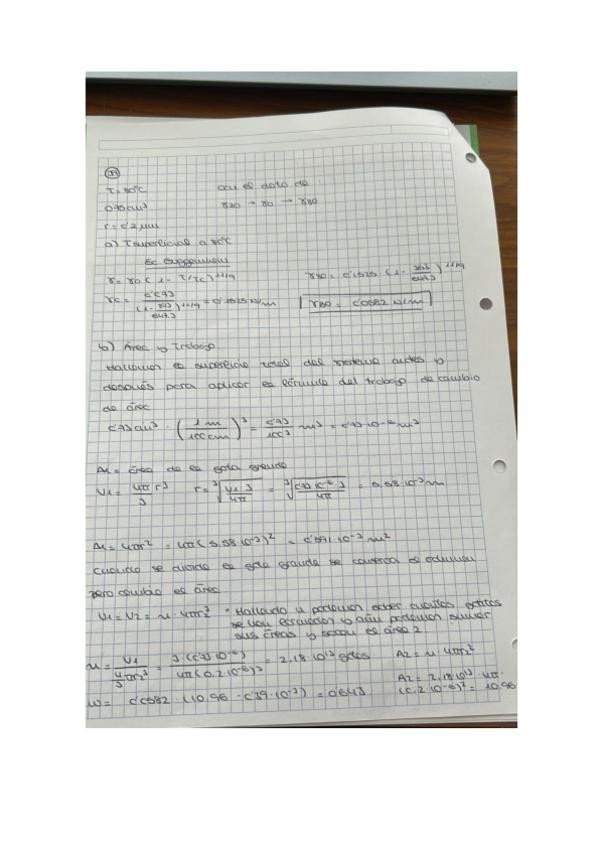 T = 80ºC
con el dato de
0'73 cm³
γ20 → γ0 → γ80
r = 0'2 μm
a) T superficial a 80ºC
Ec Guggenheim
γ = γ0 (1 - T/Tc)^11/9
γ80 = 0'1525 · (1 - 353/647.3)^11/9
γ0 = 0'073 / (1 - 293/647.3)^11/9 = 0'1525 N/m
γ80 = 0'0582 N/m
b) Área y trabajo
Hallamos la superficie total del sistema antes y
después para aplicar la fórmula del trabajo de cambio
de área
0'73 cm³ · (1 m / 100 cm)³ = 0'73 / 100³ m³ = 0'73·10⁻⁶ m³
A1 = área de la gota grande
V1 = 4πr³ / 3    r = ∛(V1·3 / 4π) = ∛(0'73·10⁻⁶·3 / 4π) = 5,58·10⁻³ m
A1 = 4πr² = 4π(5.58·10⁻³)² = 0'391·10⁻³ m²
cuando se divide la gota grande se conserva el volumen
pero cambia el área
V1 = V2 = n · 4πr2³
* Hallando n podemos saber cuántas gotitas
se han formado y aún podemos sumar
sus áreas y sacar el área 2
n = V1 / (4/3 πr2³) = 3·(0'73·10⁻⁶) / 4π(0.2·10⁻⁶)³ = 2.18·10¹³ gotas
A2 = n · 4πr2²
A2 = 2.18·10¹³ · 4π·
(0.2·10⁻⁶)² = 10.96
W = 0'0582 · (10.96 - 0'39·10⁻³) = 0'643